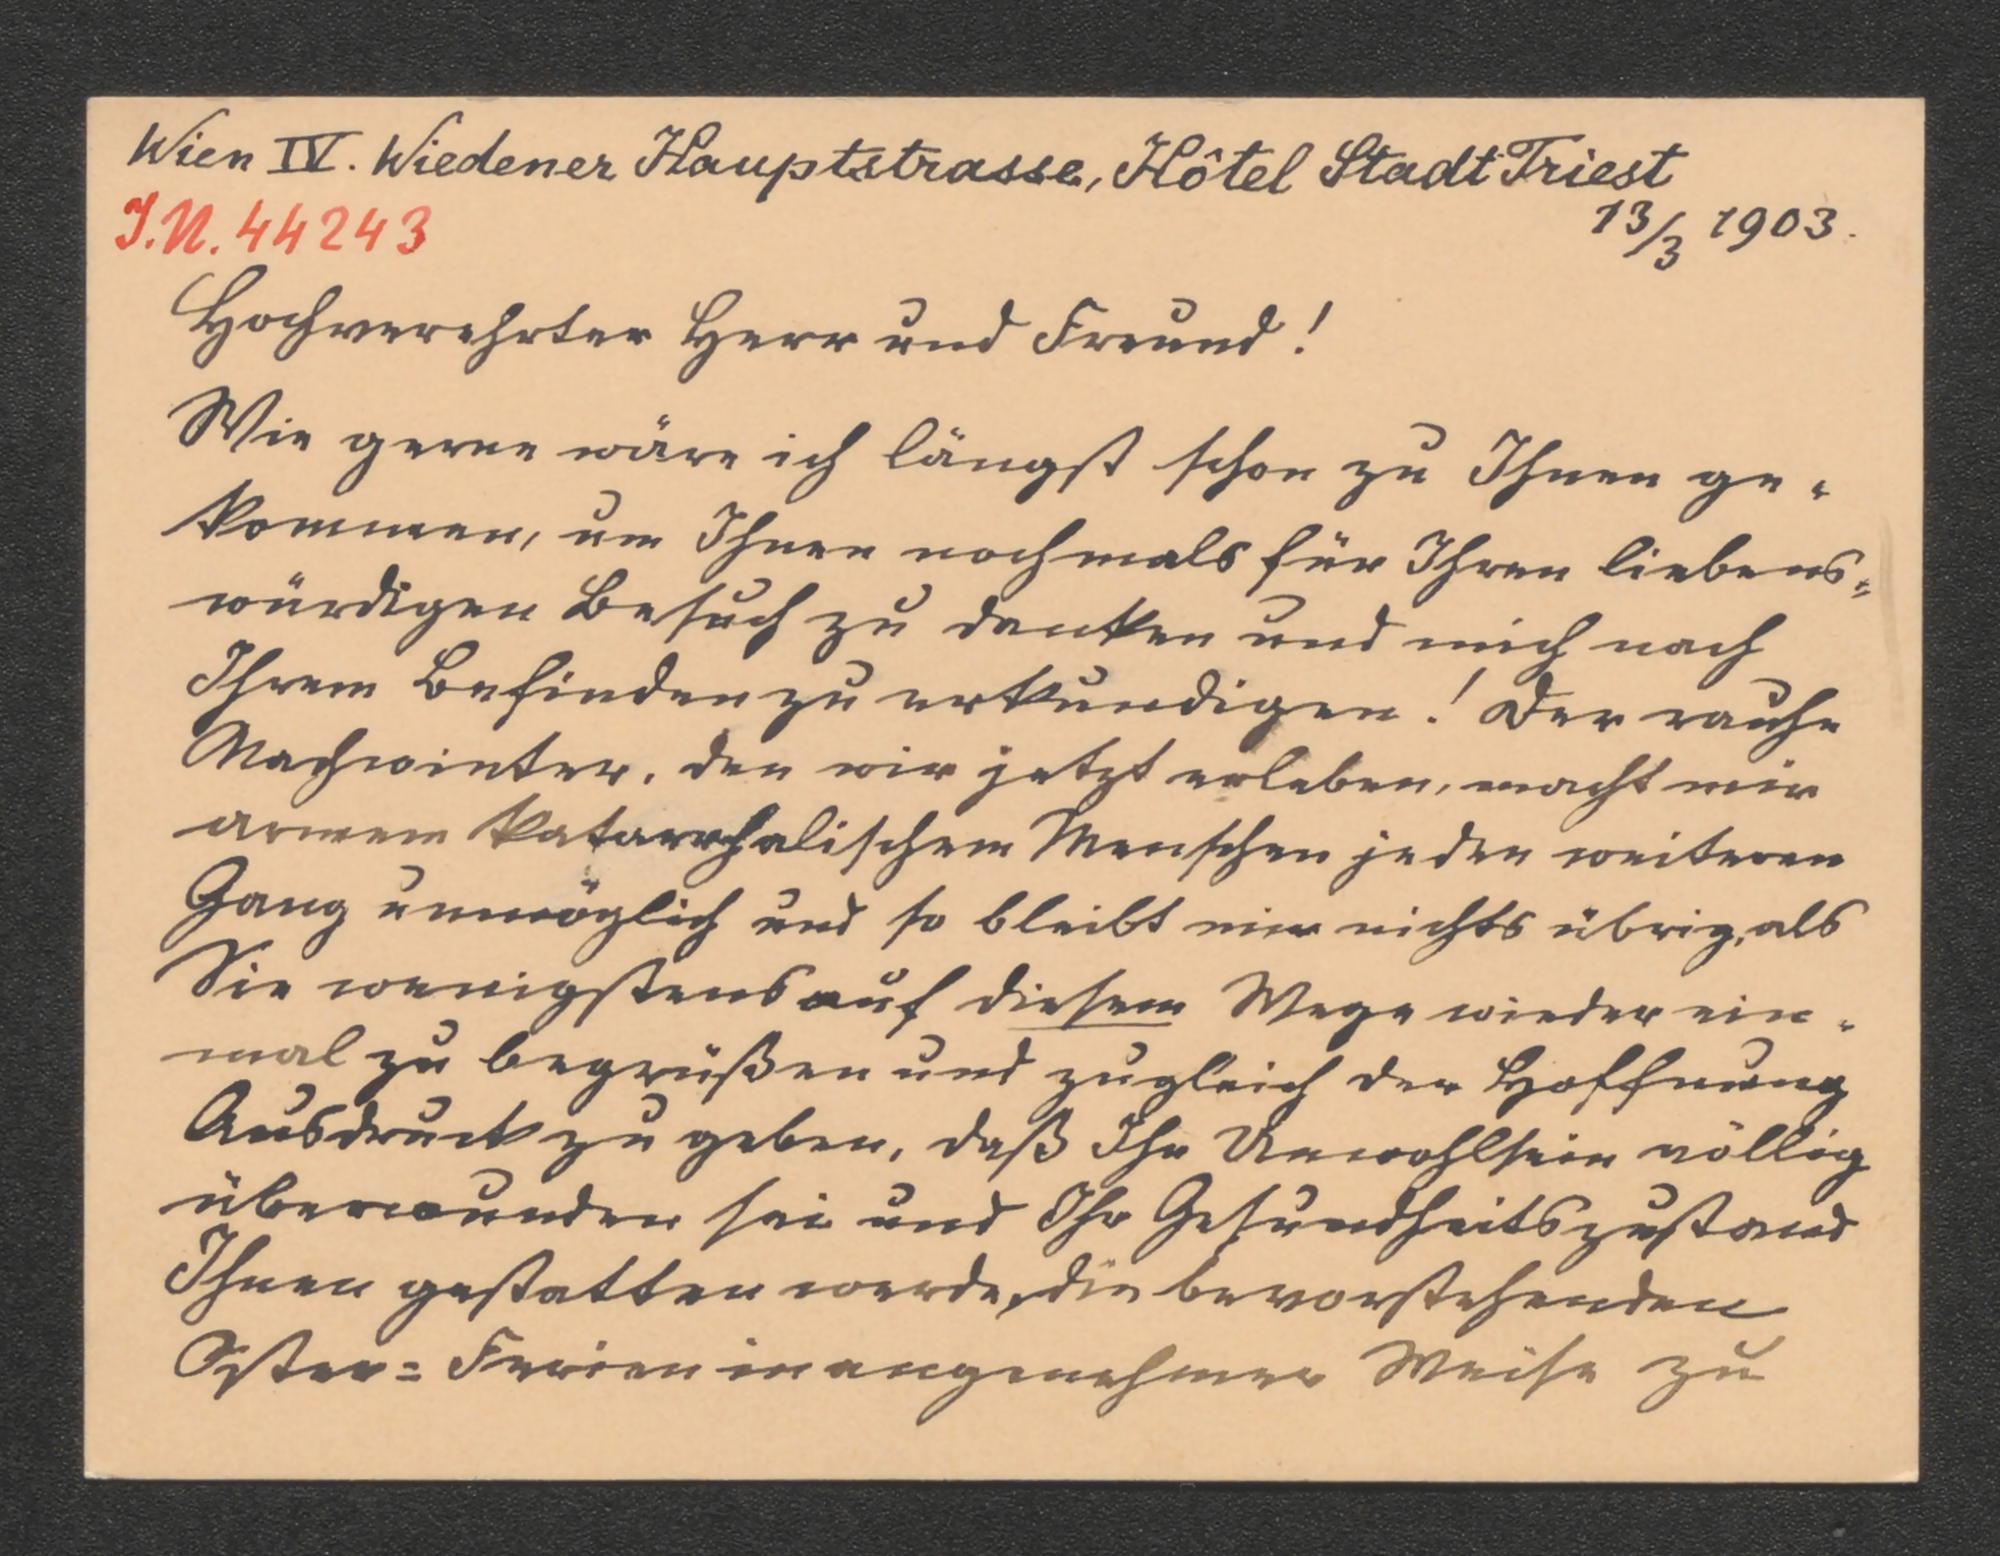 Wien IV. Wiedener Hauptstrasse, Hôtel Stadt Triest
I.N. 44243
13/3 1903.
Hochverehrter Herr und Freund!
Wie gerne wäre ich längst schon zu Ihnen ge-
kommen, um Ihnen nochmals für Ihren liebens-
würdigen Besuch zu danken und mich nach
Ihrem Befinden zu erkundigen! Der rauhe
Nachwinter, den wir jetzt erleben, macht mir
armem katarrhalischem Menschen jeden weiteren
Gang unmöglich und so bleibt mir nichts übrig, als
Sie wenigstens auf diesem Wege wieder ein-
mal zu begrüßen und zugleich der Hoffnung
Ausdruck zu geben, daß Ihr Unwohlsein völlig
überwunden sei und Ihr Gesundheitszustand
Ihnen gestatten werde, die bevorstehenden
Oster= Ferien in angenehmer Weise zu